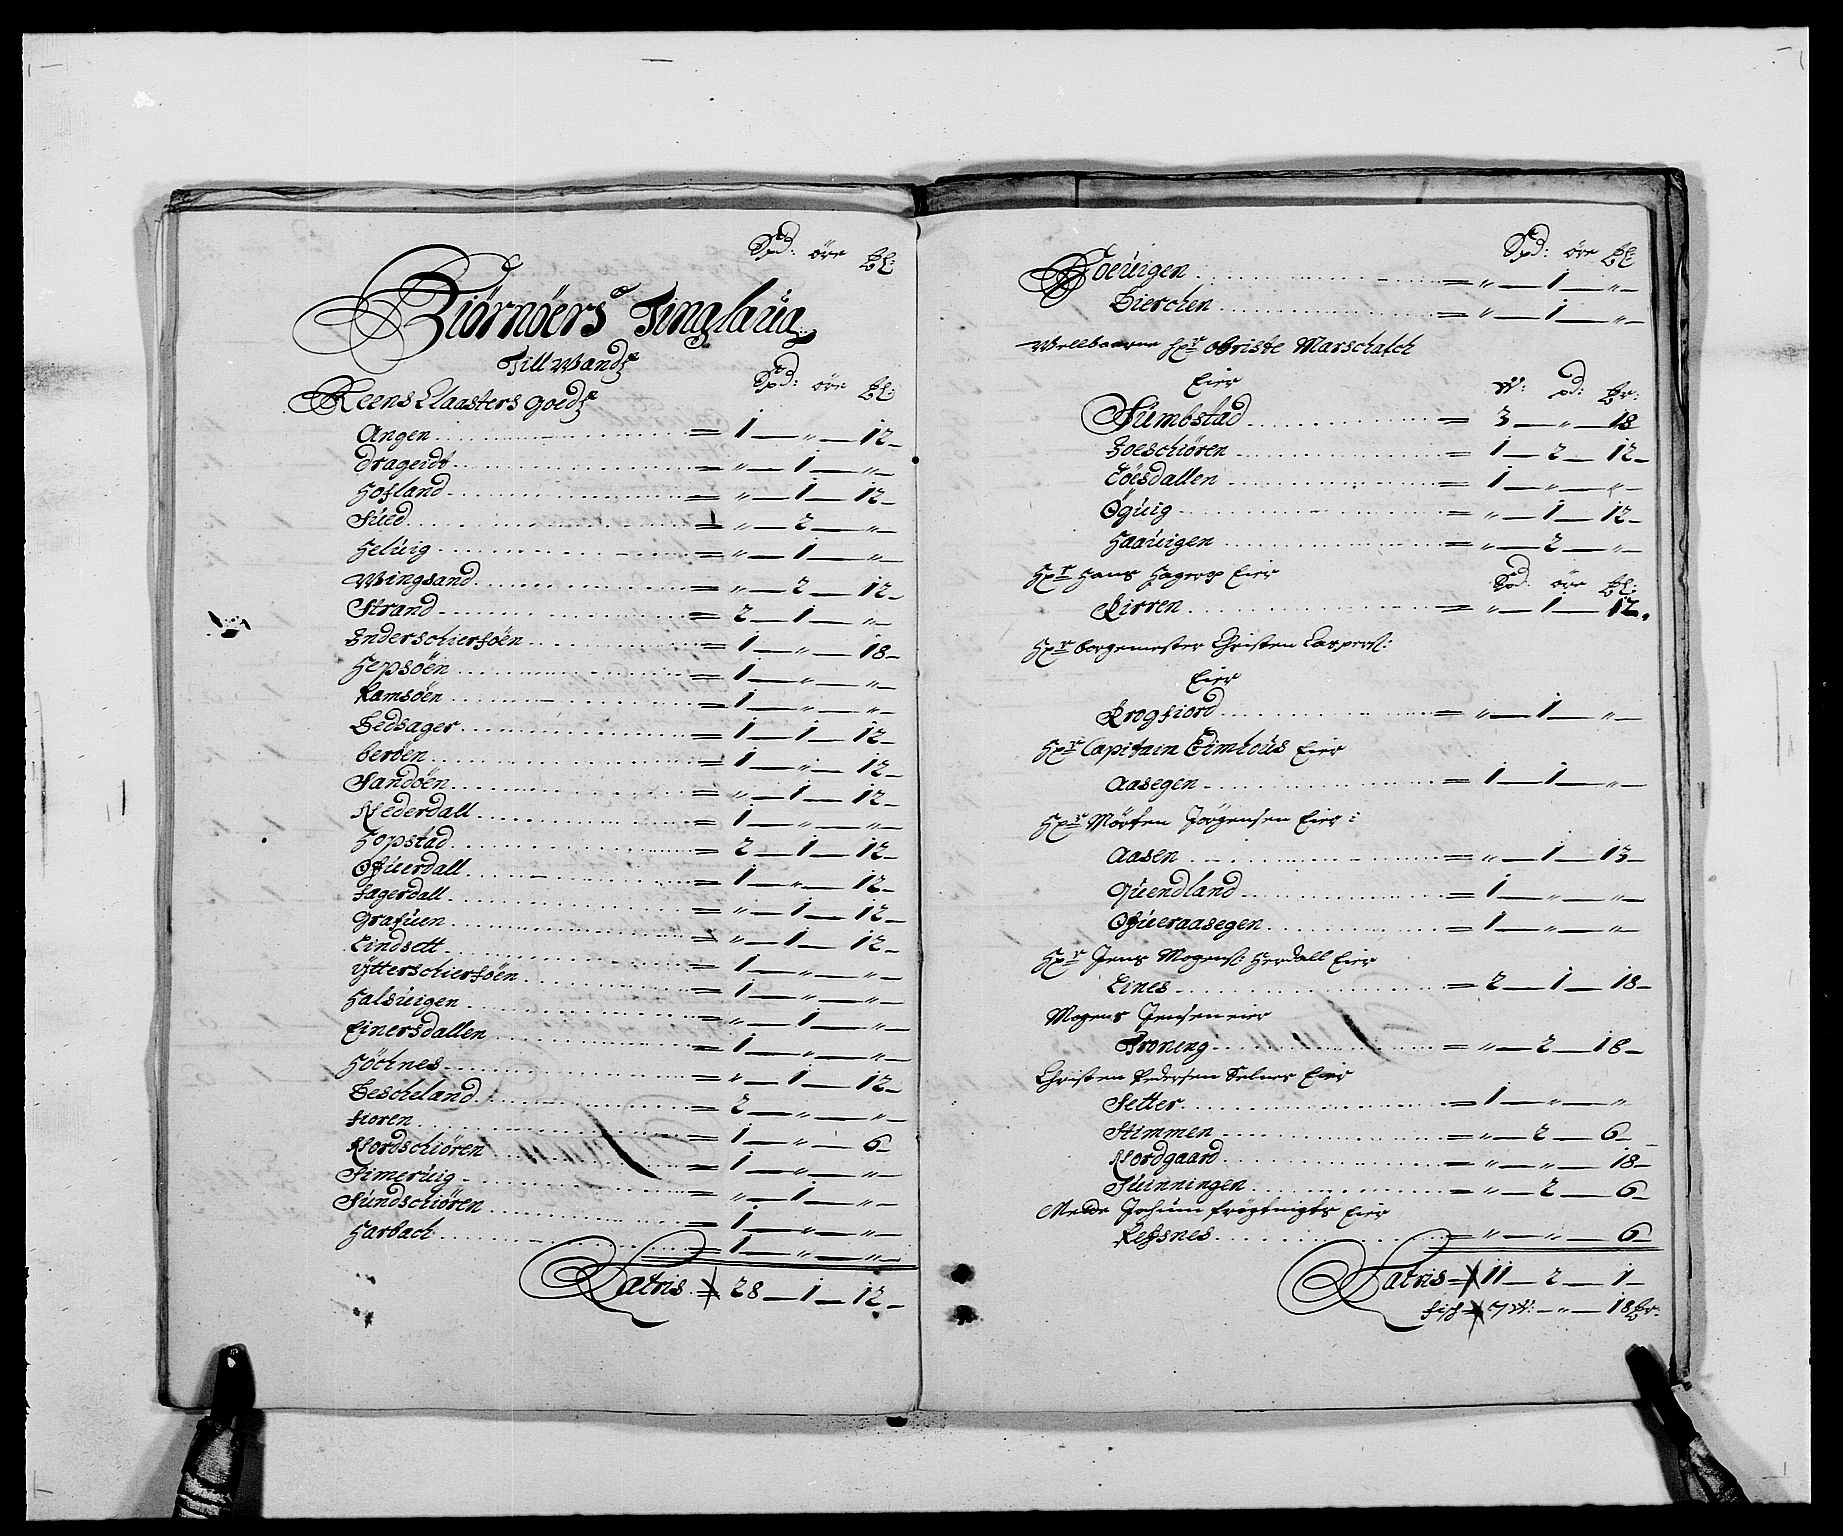 Spd: öre
Biörnöers Tinglaug
Till Wands
Spd: öre
Reens Claasters goeds
Angen = 1 — „ — 12 —
drageidt = „ — 1 — „ —
Hofland = „ — 1 — 12 —
Sued = „ — 2 — „ —
Heluig = „ — 1 — „ —
Wingsand = „ — 2 — 12 —
Strand = 2 — 1 — „ —
Inderschiersöen = 1 — „ — 18 —
Hepsöen = 1 — „ — „ —
Ramsöen = 1 — „ — „ —
Bedsager = 1 — 1 — 12 —
beröen = 1 — „ — 12 —
Sandöen = „ — 1 — 12 —
Nederdall = 1 — „ — „ —
Hopstad = 2 — 1 — 12 —
Ofuerdall = 1 — „ — 12 —
Fagerdall = „ — 1 — 12 —
Grafuen = „ — 1 — 12 —
Lindsett = 1 — „ — „ —
ÿtterschiersöen = 1 — „ — „ —
Halsuigen = „ — 1 — „ —
Einersdallen = 1 — „ — „ —
Höchnes = „ — 1 — 12 —
Bescheland = 2 — „ — „ —
Fioren = 1 — „ — 6 —
Nordschiören = 1 — „ — „ —
Simeruig = „ — 1 — „ —
Sundschiören = 1 — „ — „ —
Harbach = 1 — „ — „ —
Latris = 28 — 1 — 12 —
Spd: öre
Hoeuigen = „ — 1 — „ —
Bierchen = „ — 1 — „ —
Wellbaarne Hr Obriste Marschalch
Eier W: pd:
Sumbstad = 3 — „ — 18
Roeschiören = 1 — 2 — 12 —
Töesdallen = 1 — „ — „ —
Öguig = „ — 1 — 12 —
Haauigen = „ — 2 — „ —
Hr Hans Hagerop Eier Spd: öre
Kirren = „ — 1 — 12.
Hr borgemester Christen Caspers:
Eier
Krogfiord = „ — 1 — „ —
Hr Capitain Eier
Aasegen = 1 — 1 — „ —
Hr Mörten Jörgensen Eier:
Aasen = „ — 1 — 13 —
Quendland = 1 — „ — „ —
Ofueraasegen = 1 — „ — „ —
Hr Jens Mogens: Herdall Eier
Lines = 2 — 1 — 18 —
Mogens Jensen eier
Troneng = „ — 2 — 18 —
Christen Pedersen Selner Eier
Setter = 1 — „ — „
Stimmen = „ — 2 — 6 —
Nordgaard = „ — „ — 18 —
Suinningen = „ — 2 — 6 —
Johum Eier
Refsnes = „ — „ — 6 —
Latris = 11 — 2 — 1 —
fisch = 7 W: — „ — 18